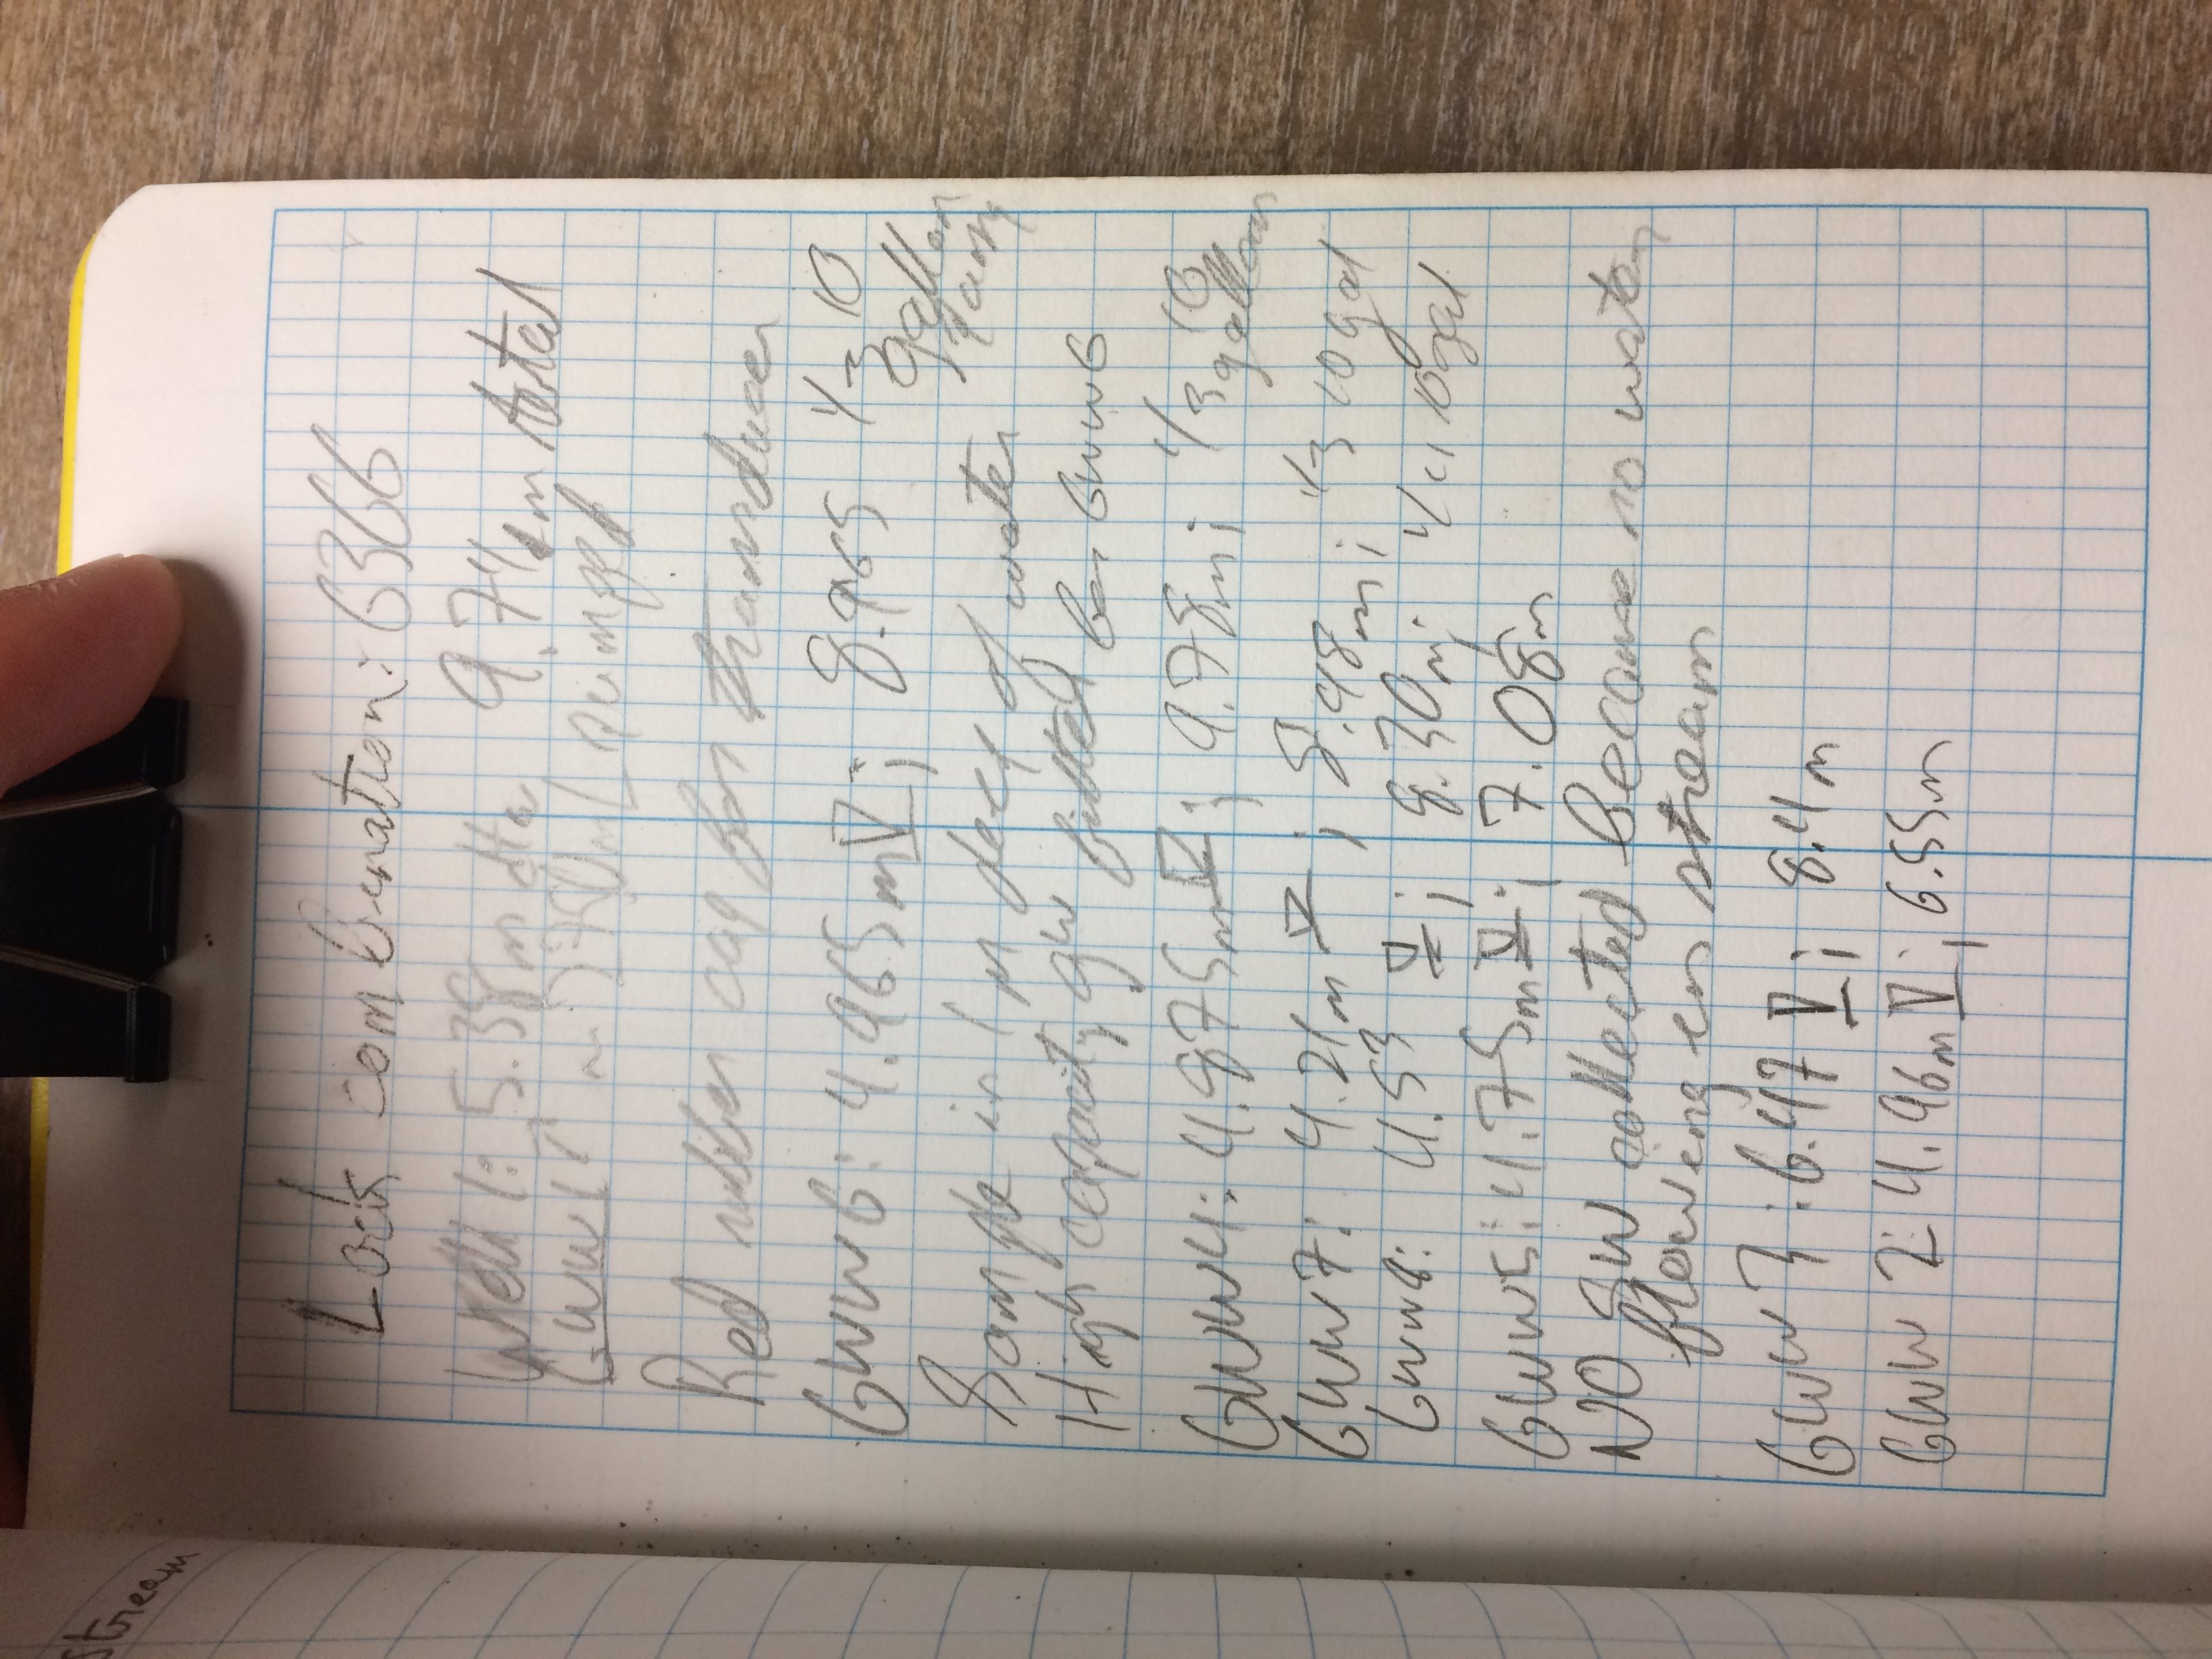 stream
Lock combination: 6366
Well 1: 5.38m dtw 9.74m total
GWW1 ~ 2750mL pumped
Red rubber cap for transducer
GWW6: 4.965m ∇; 8.965 1/3 10
gallon
Sample in 1 m deep of water
High capacity gw filter for GWW6
GWW4: 4.875m ∇; 9.78m; 1/3 10
gallon
GWW7: 4.21m ∇; 8.48m; 1/3 10gal
GWW8: 4.53 ∇; 8.30m; 1/4 10gal
GWW5: 4.75m ∇; 7.08m
NO SW collected because no water
flowing in stream
GWW 3: 6.47 ∇; 8.4m
GWW 2: 4.96m ∇; 6.55m